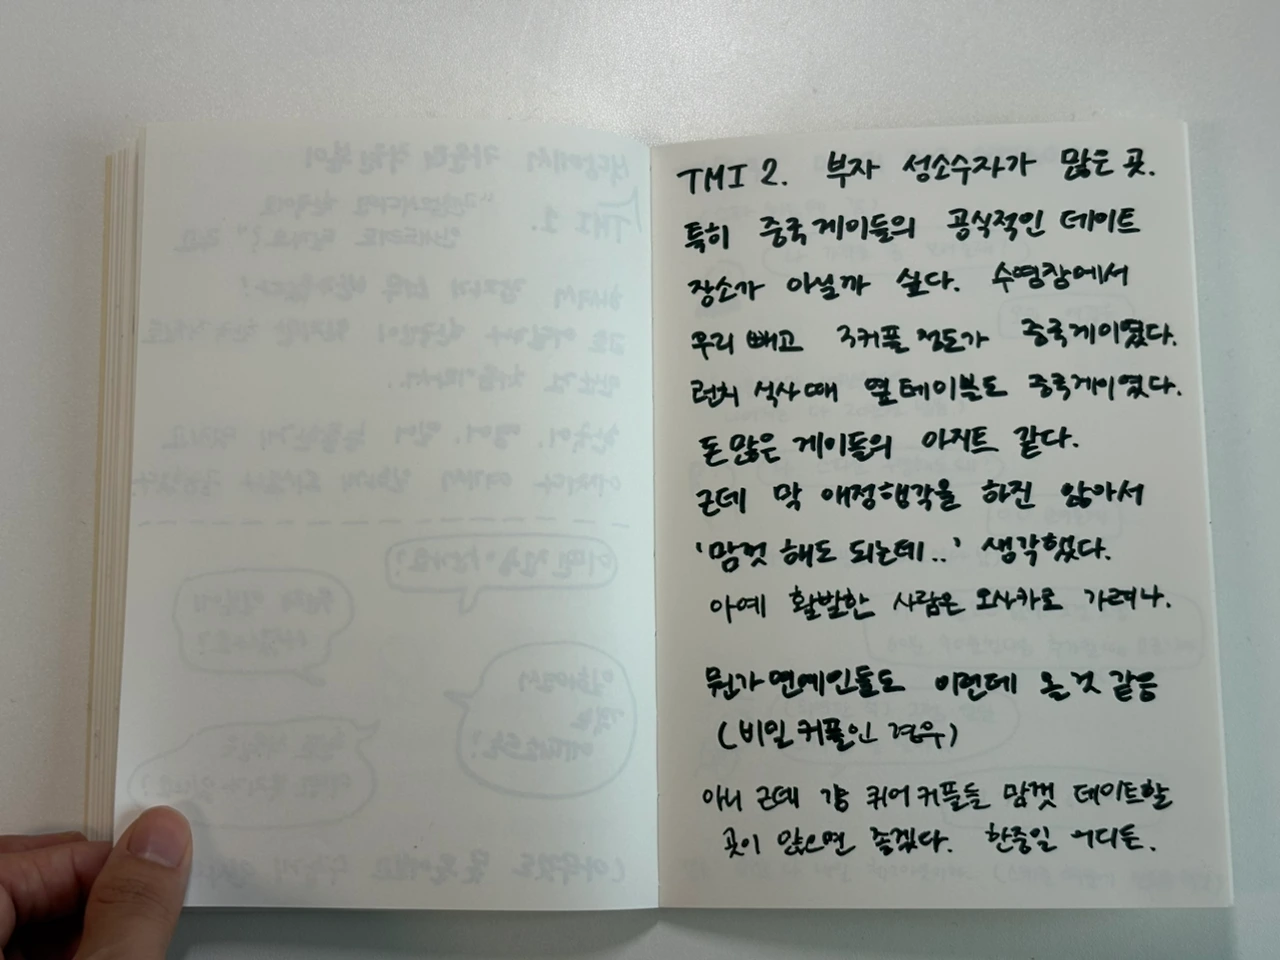 TMI 2. 부자 성소수자가 많은 곳.
특히 중국게이들의 공식적인 데이트
장소가 아닐까 싶다. 수영장에서
우리 빼고 3커플 정도가 중국게이였다.
런치 식사때 옆테이블도 중국게이였다.
돈많은 게이들의 아지트 같다.
근데 막 애정행각을 하진 않아서
'맘껏 해도 되는데..' 생각했다.
아예 활발한 사람은 오사카로 가려나.
뭔가 연예인들도 이런데 올 것 같음
(비밀커플인 경우)
아니 근데 걍 퀴어커플들 맘껏 데이트할
곳이 많으면 좋겠다. 한중일 어디든.